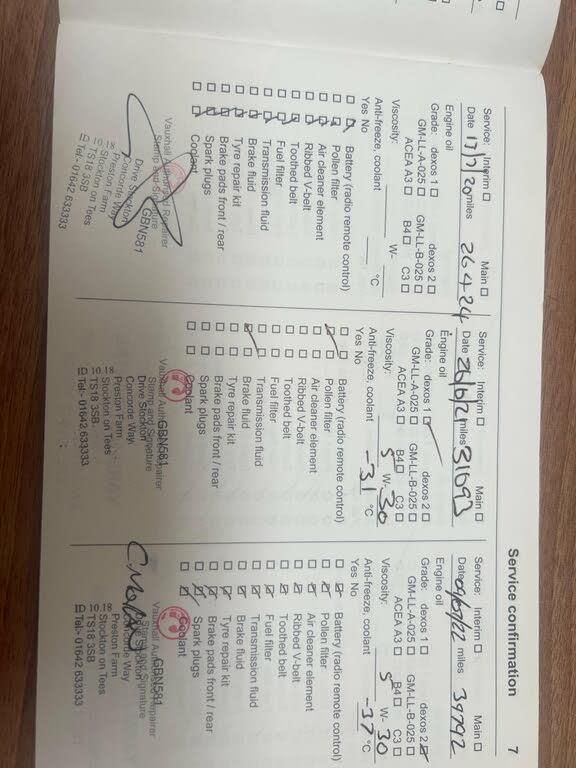 Service confirmation
7
Service: Interim ☐ Main ☐
Date 17/7/20 miles 26424
Engine oil
Grade: dexos 1 ☐ dexos 2 ☐
GM-LL-A-025 ☐ GM-LL-B-025 ☐
ACEA A3 ☐ B4 ☐ C3 ☐
Viscosity: W-
Anti-freeze, coolant °C
Yes No
Battery (radio remote control)
Pollen filter
Air cleaner element
Ribbed V-belt
Toothed belt
Fuel filter
Transmission fluid
Brake fluid
Tyre repair kit
Brake pads front / rear
Spark plugs
Coolant
Vauxhall Authorised Repairer
Stamp and Signature
GBN581
Drive Stockton
Concorde Way
Preston Farm
Stockton on Tees
TS18 3SB
Tel:- 01642 633333
Service: Interim ☐ Main ☐
Date miles 31093
Engine oil
Grade: dexos 1 ☐ dexos 2 ☐
GM-LL-A-025 ☐ GM-LL-B-025 ☐
ACEA A3 ☐ B4 ☐ C3 ☐
Viscosity: 5 W- 30
Anti-freeze, coolant -31 °C
Yes No
Battery (radio remote control)
Pollen filter
Air cleaner element
Ribbed V-belt
Toothed belt
Fuel filter
Transmission fluid
Brake fluid
Tyre repair kit
Brake pads front / rear
Spark plugs
Coolant
Vauxhall Authorised Repairer
GBN581
Stamp and Signature
Drive Stockton
Concorde Way
Preston Farm
Stockton on Tees
ID 10.18 TS18 3SB
Tel:- 01642 633333
Service: Interim ☐ Main ☐
Date miles 39792
Engine oil
Grade: dexos 1 ☐ dexos 2 ☑
GM-LL-A-025 ☐ GM-LL-B-025 ☐
ACEA A3 ☐ B4 ☐ C3 ☐
Viscosity: 5 W- 30
Anti-freeze, coolant -37 °C
Yes No
Battery (radio remote control)
Pollen filter
Air cleaner element
Ribbed V-belt
Toothed belt
Fuel filter
Transmission fluid
Brake fluid
Tyre repair kit
Brake pads front / rear
Spark plugs
Coolant
Vauxhall Authorised Repairer
GBN581
Stamp and Signature
Preston Farm
Stockton on Tees
ID 10.18 TS18 3SB
Tel:- 01642 633333